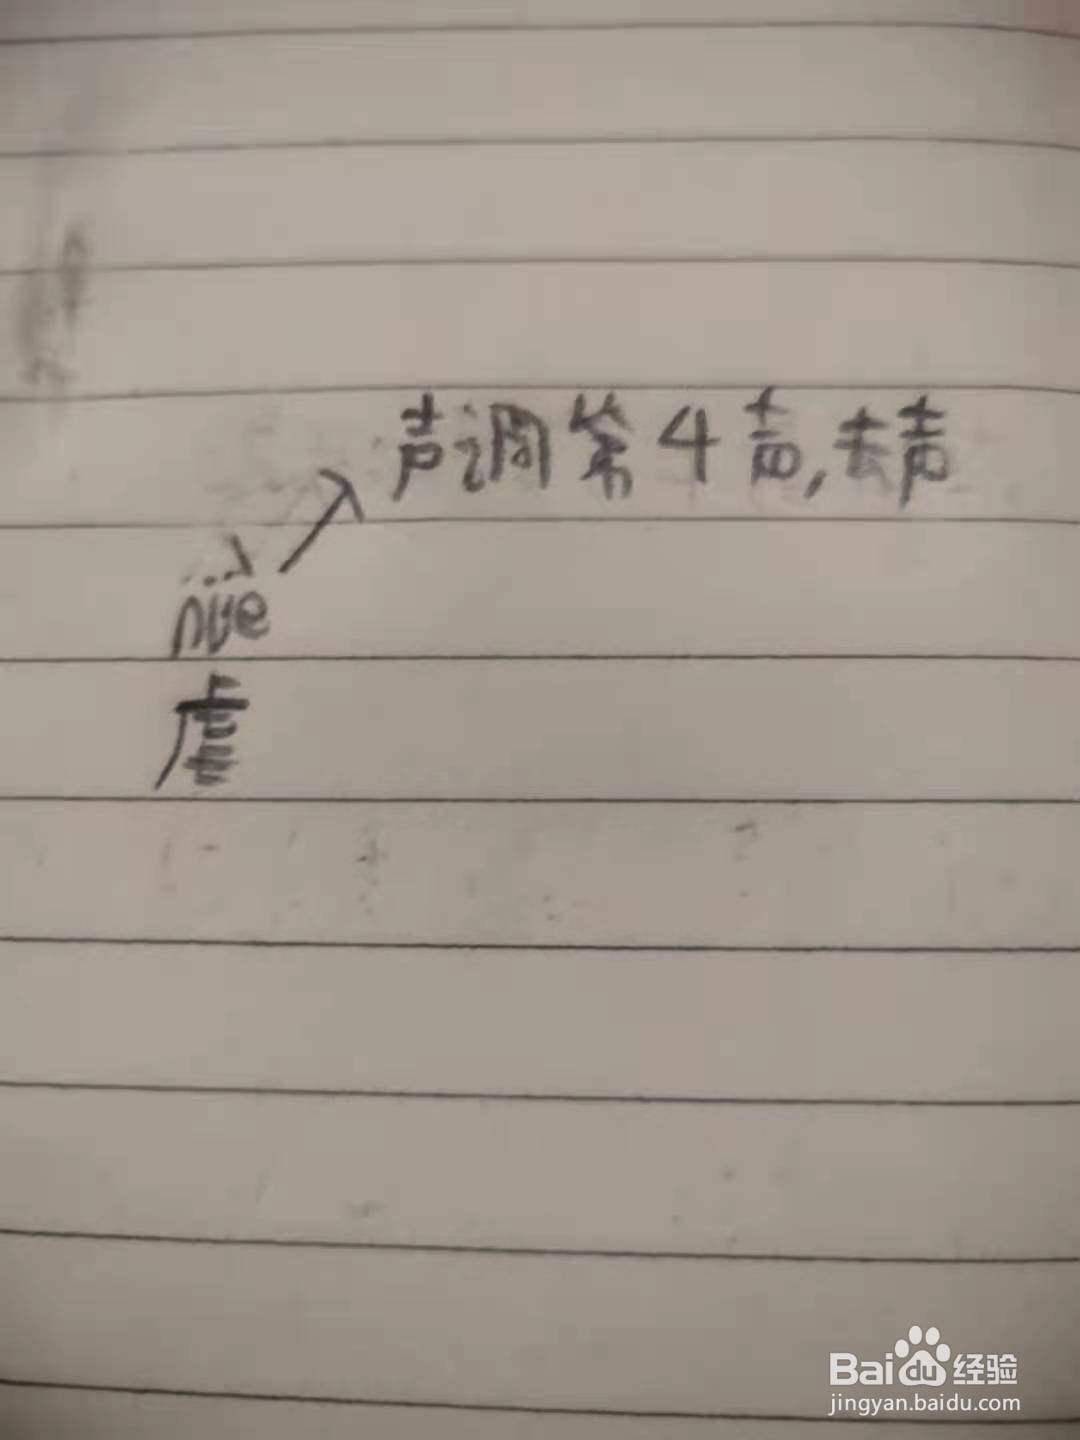 声调第4声,去声
nüè
虐
Baidu经验
jingyan.baidu.com